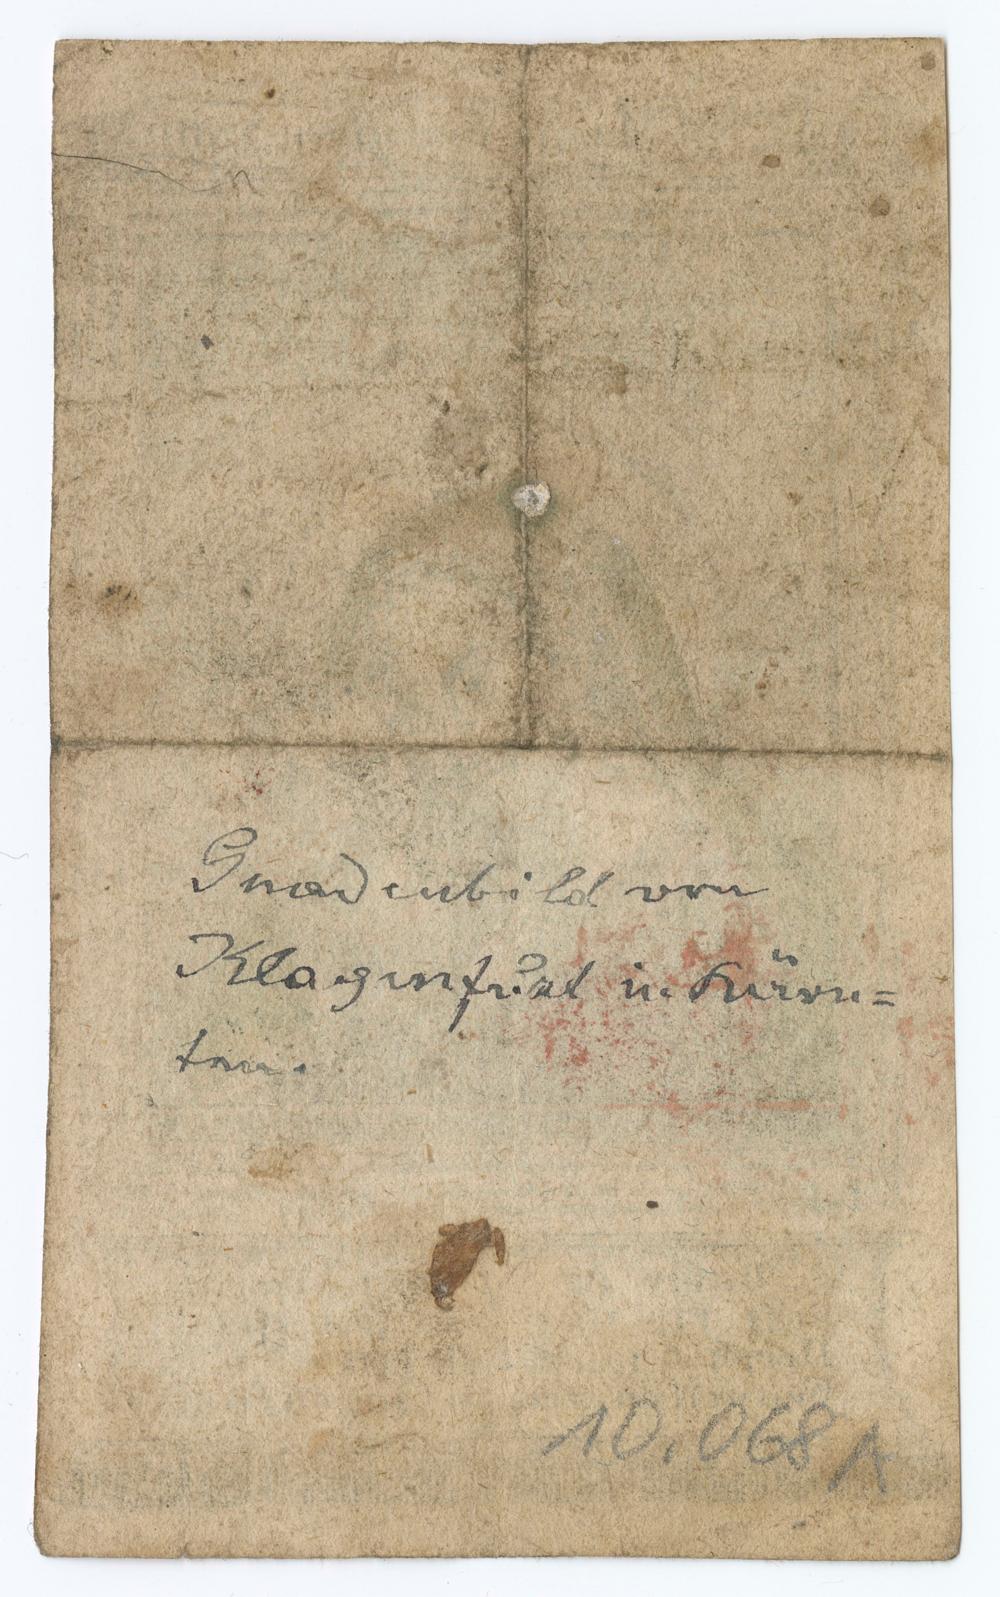 Gnadenbild von
Klagenfurt in Kärn=
ten.
10.068 A